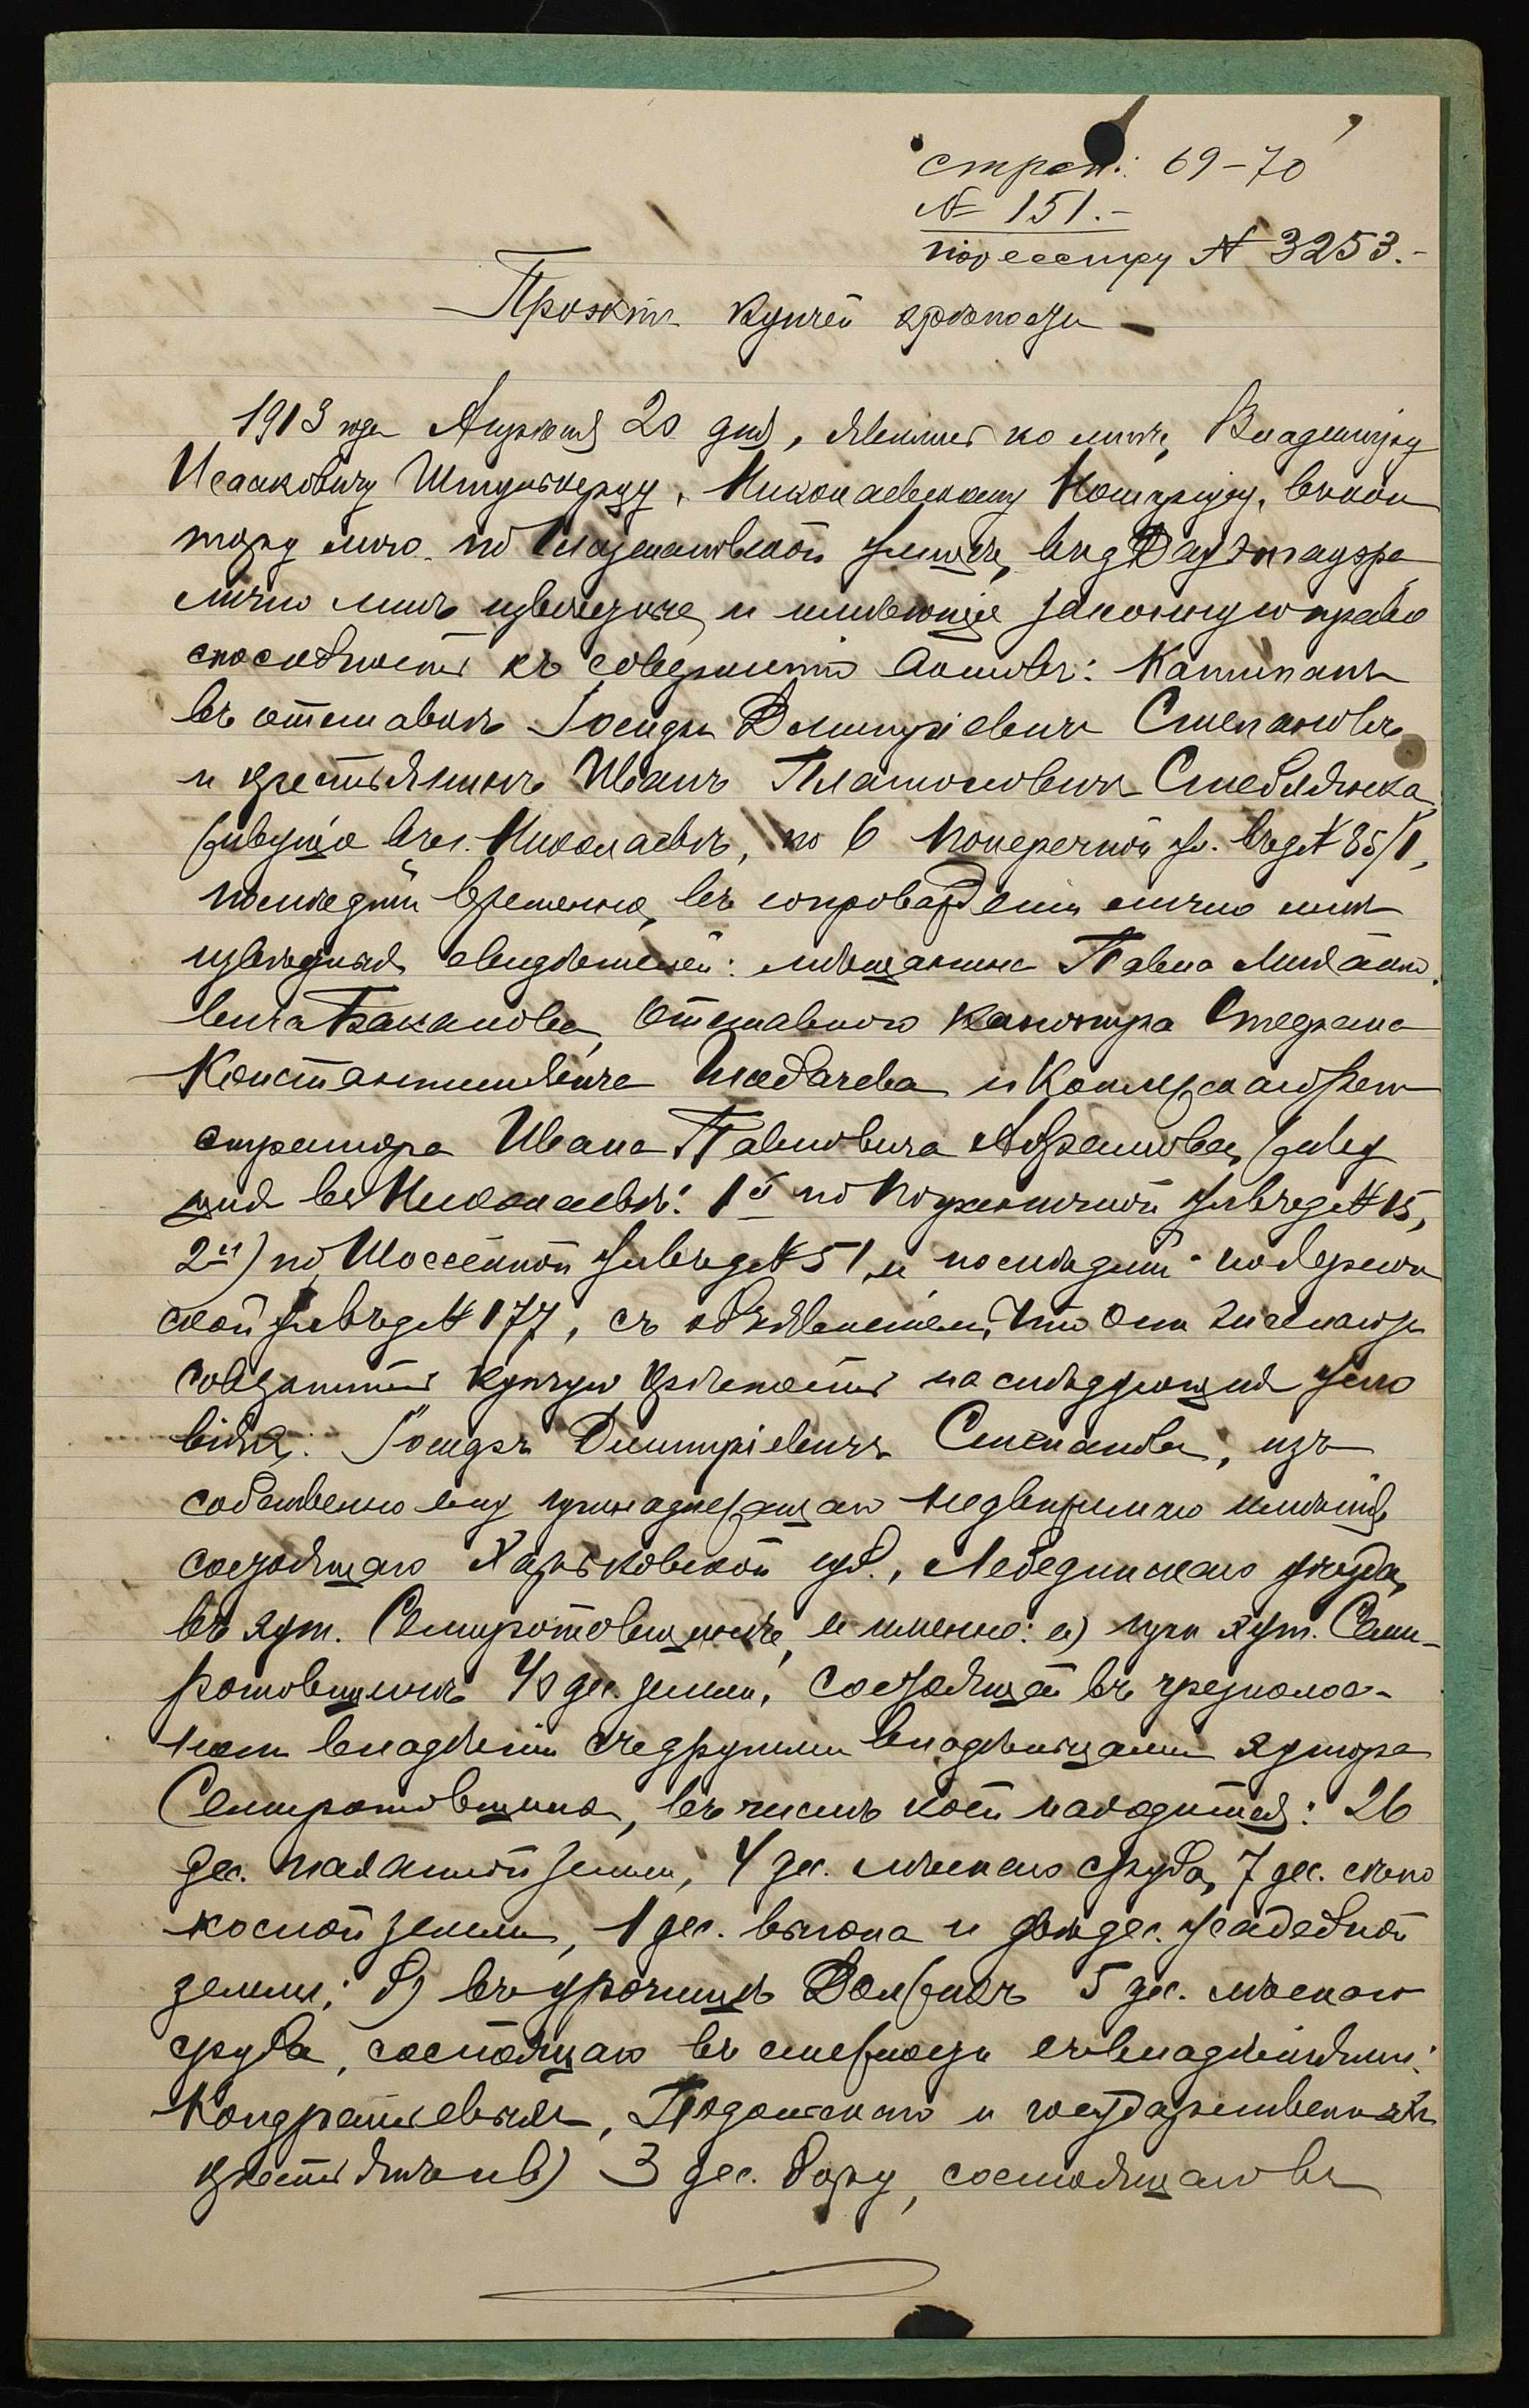 стран: 69-70
№ 151.-
по реестру № 3253.-
Проэктъ купчей крѣпости
1913 года Апрѣля 20 дня, явились ко мнѣ, Владимиру
Исааковичу Нотаріусу, Николаевскому въ кон
тору мою по улицѣ, въ д
лично мнѣ извѣстные и имѣющіе законную право
способность къ совершенію актовъ: Капитанъ
въ отставкѣ Іосифъ Димитріевичъ Степановъ
и крестьянинъ Иванъ Платоновичъ
живущіе въ г. Николаевѣ, по 6 Поперечной ул. въ д № 85/1,
послѣдній временно, въ сопровожденіи лично мнѣ
извѣстныхъ свидѣтелей: мѣщанина Павла Михайло
вича Баканова, отставного Стефана
Константиновича и Коллежскаго Реги
стратора Ивана Павловича Абрамова, живу
щихъ въ Николаевѣ: 1й по Пограничной ул въ д № 15,
2й) по Шоссейной ул въ д № 51, и послѣдній по Херсон
ской ул въ д № 177, съ объявленіемъ, что они желаютъ
совершить купчую крѣпость на слѣдующихъ усло
віяхъ: Іосифъ Димитріевичъ Степановъ, изъ
собственно ему принадлежащаго недвижимаго имѣнія
состоящаго Харьковской губ., Лебединскаго уѣзда,
въ хут. Семиротовщинѣ, и именно: а) при хут. Семи-
ротовщинѣ 40 дес. земли, состоящей въ чрезполос-
номъ владѣніи съ другими владѣльцами хутора
Семиротовщина, въ числѣ коей находится: 26
дес. пахатной земли, 4 дес. лѣснаго сруба, 7 дес. сѣно
косной земли, 1 дес. выгона и двѣ дес. усадебной
земли; б) въ урочищѣ Должикъ 5 дес. лѣснаго
сруба, состоящаго въ смежности съ владѣніями:
Кондратьевыхъ, и государственныхъ
крестьянъ и в) 3 дес. бору, состоящаго въ